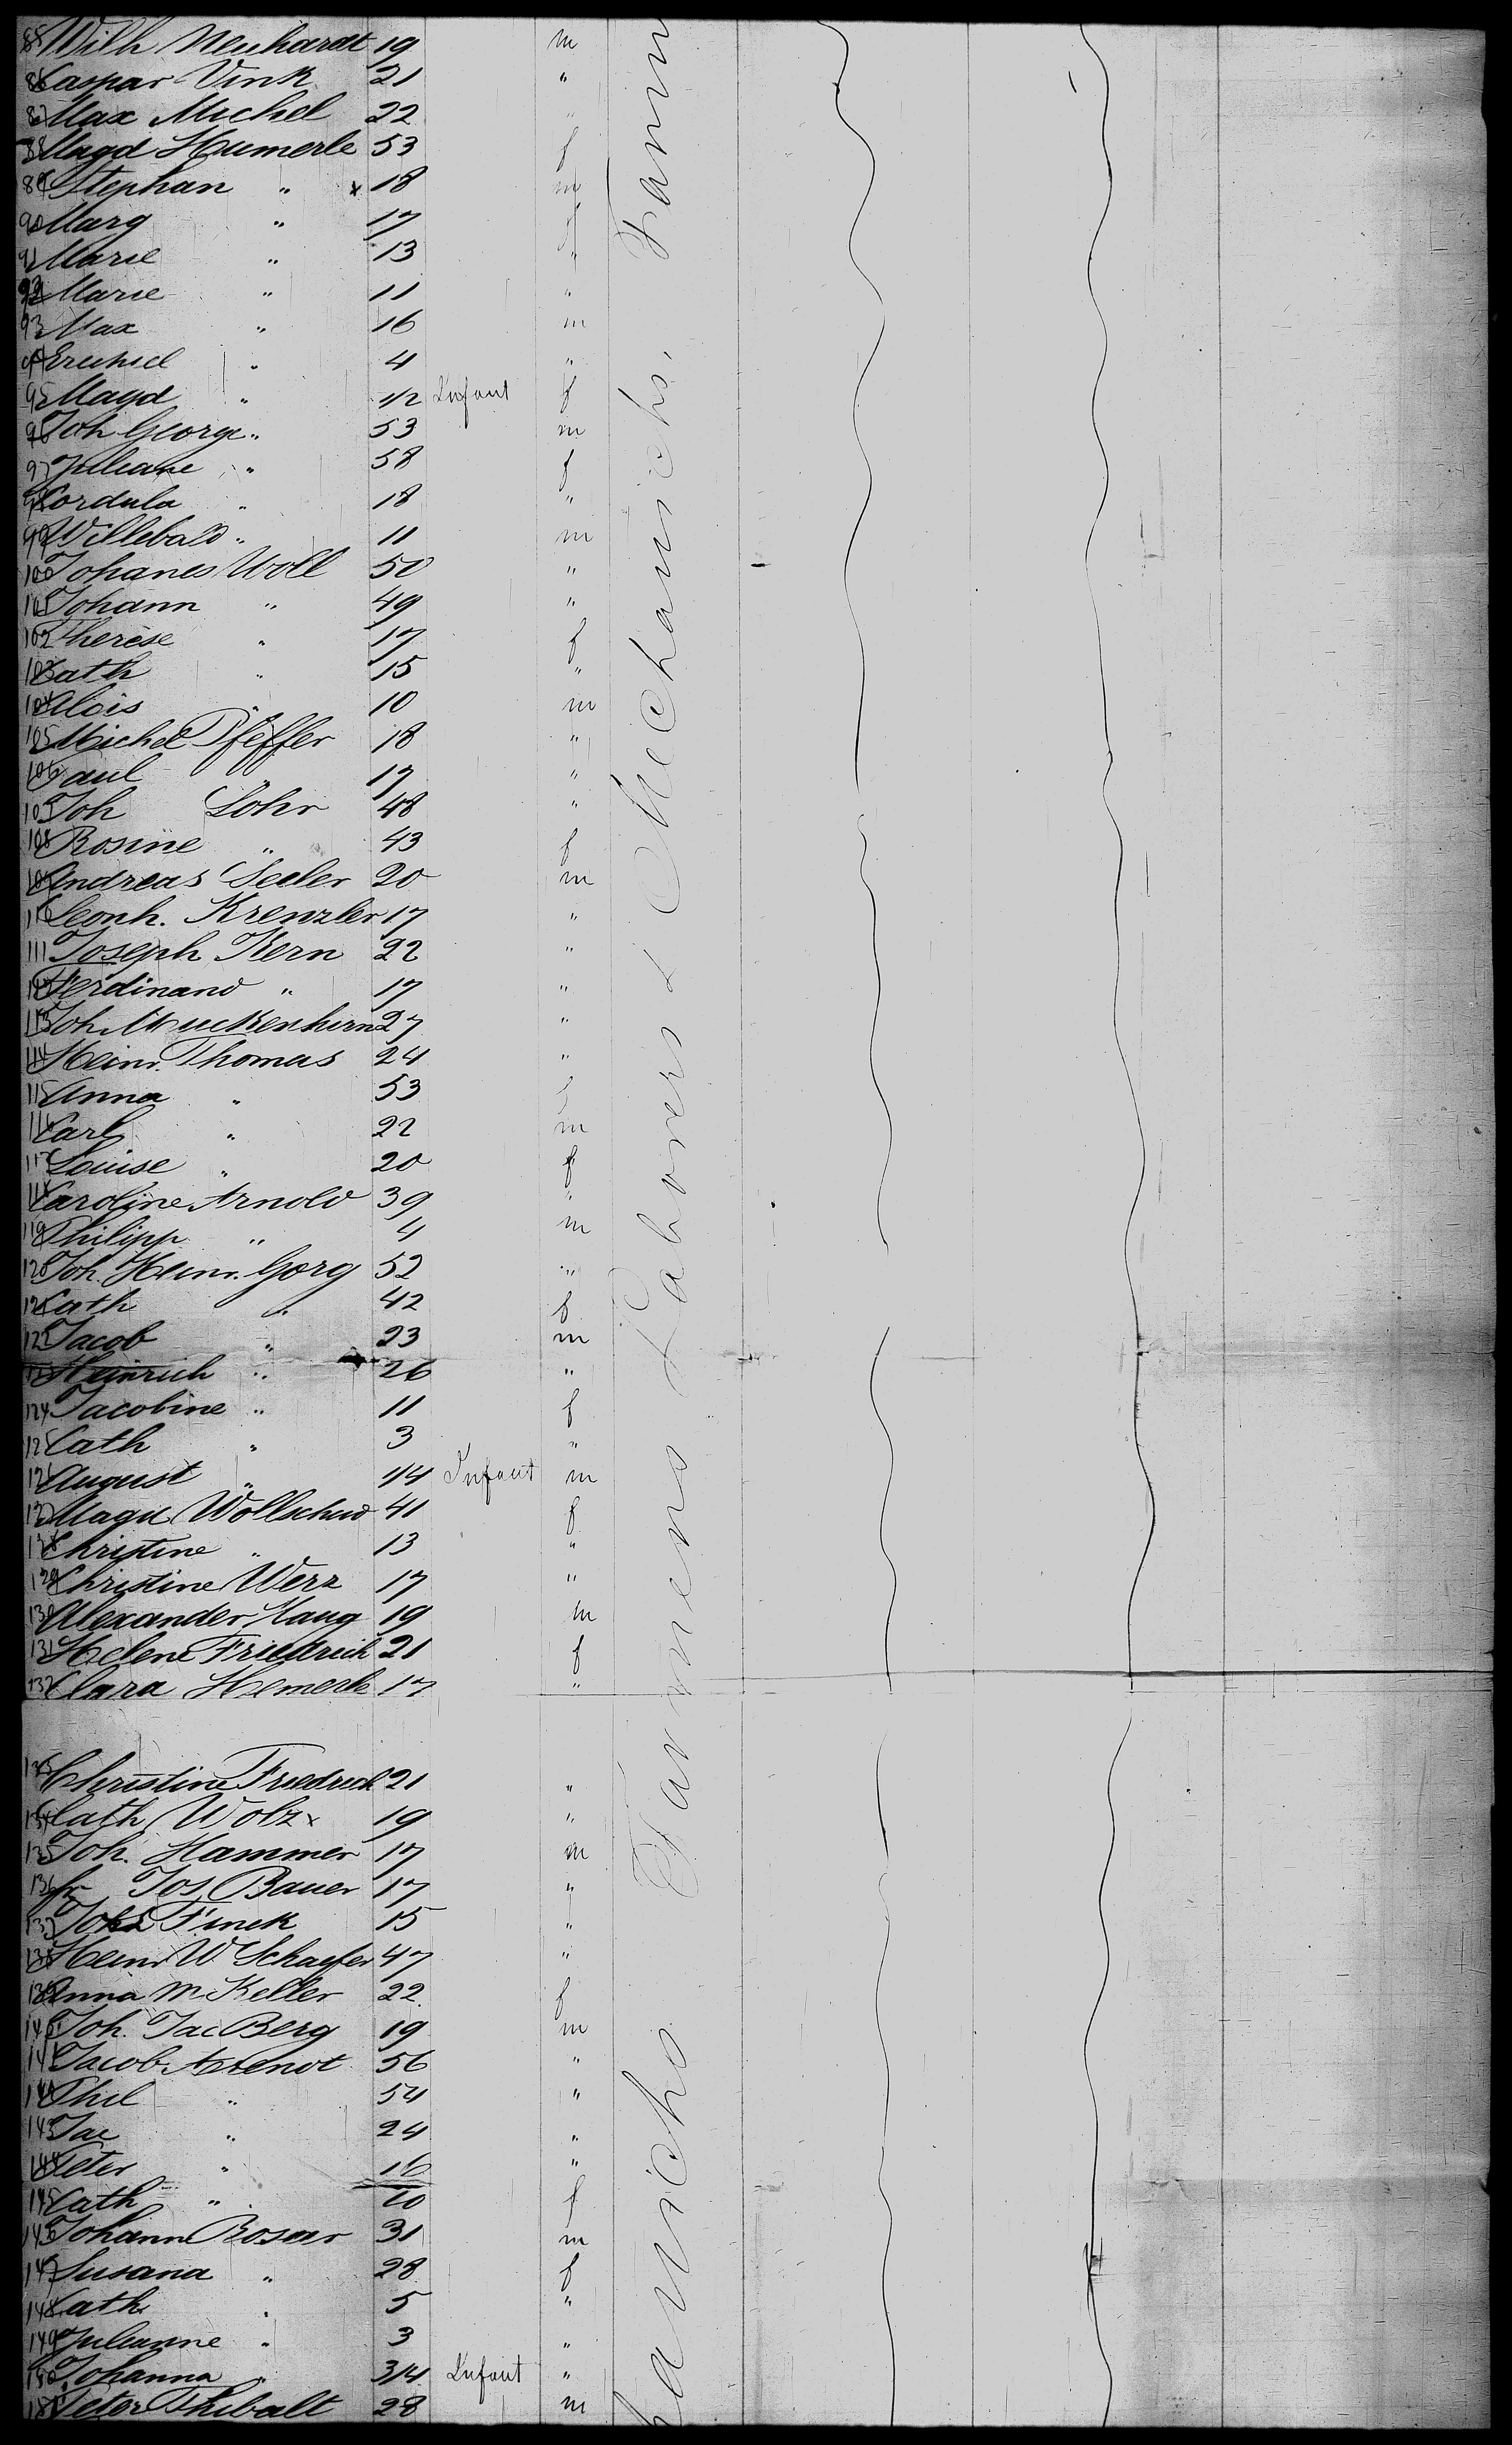 85 Wilh Neuhardt 19 m
86 Caspar Vink 21 "
87 Max Michel 22 "
88 Magd Humerle 53 f
89 Stephan " x 18 m
90 Marg " 17 f
91 Marie " 13 "
92 Marie " 11 "
93 Max " 16 m
94 " 4 "
95 Magd " 1/2 Infant f
96 Joh George " 53 m
97 Juliane " 58 f
98 Cordula " 18 "
99 Willebald " 11 m
100 Johanes Woll 50 "
101 Johann " 49 "
102 Therese " 17 f
103 Cath " 15 "
104 Alois " 10 m
105 Michel Pfeffer 18 "
106 Paul " 17 "
107 Joh Lohr 48 "
108 Rosine " 43 f
109 Andreas Seeler 20 m
110 Leonh. Krenzler 17 "
111 Joseph Kern 22 "
112 Ferdinand " 17 "
113 Joh. Muckenhirn 27 "
114 Heinr. Thomas 24 "
115 Anna " 53 f
116 Carl " 22 m
117 Louise " 20 f
118 Caroline Arnold 39 "
119 Philipp " 4 m
120 Joh. Heinr. Gorg 52 "
121 Cath " 42 f
122 Jacob " 23 m
123 Heinrich " 26 "
124 Jacobine " 11 f
125 Cath " 3 "
126 August " 1/4 Infant m
127 Magd 41 f
128 Christine " 13 "
129 Christine Werz 17 "
130 Alexander Haug 19 m
131 Helene Friedrich 21 f
132 Clara Hemerle 17 "
133 Christine Friedrich 21 "
134 Cath Wolz x 19 "
135 Joh. Hammer 17 m
136 fr Jos Bauer 17 "
137 Finck 15 "
138 Heinr W. Schaefer 47 "
139 Anna M Keller 22 f
140 Joh. Jac Berg 19 m
141 Jacob Arendt 56 "
142 Phil " 54 "
143 Jac " 24 "
144 Peter " 16 "
145 Cath " 20 f
146 Johann Rosar 31 m
147 Susana " 28 f
148 Cath " 5 "
149 Julianne " 3 "
150 Johanna " 3/4 Infant "
151 Peter Thibalt 28 m
hanichs Farmers Labourers & Mechanichs, Farm